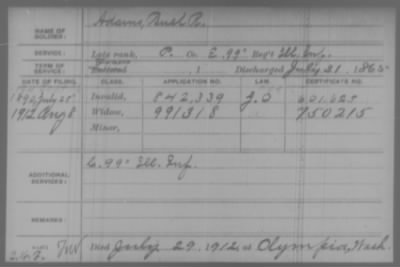 NAME OF SOLDIER: Adams, R.
SERVICE: Late rank, P. Co. E. 99" Reg't Ill. Inf.
TERM OF SERVICE: Enrolled , 1 Discharged July 31, 1865
DATE OF FILING. CLASS. APPLICATION NO. LAW. CERTIFICATE NO.
July Invalid, 842,339 601.
1912 Aug 8 Widow, 991318 750215
Minor,
ADDITIONAL SERVICES: E. 99" Ill. Inf.
REMARKS:
Died July 29, 1912, at Olympia, Wash.